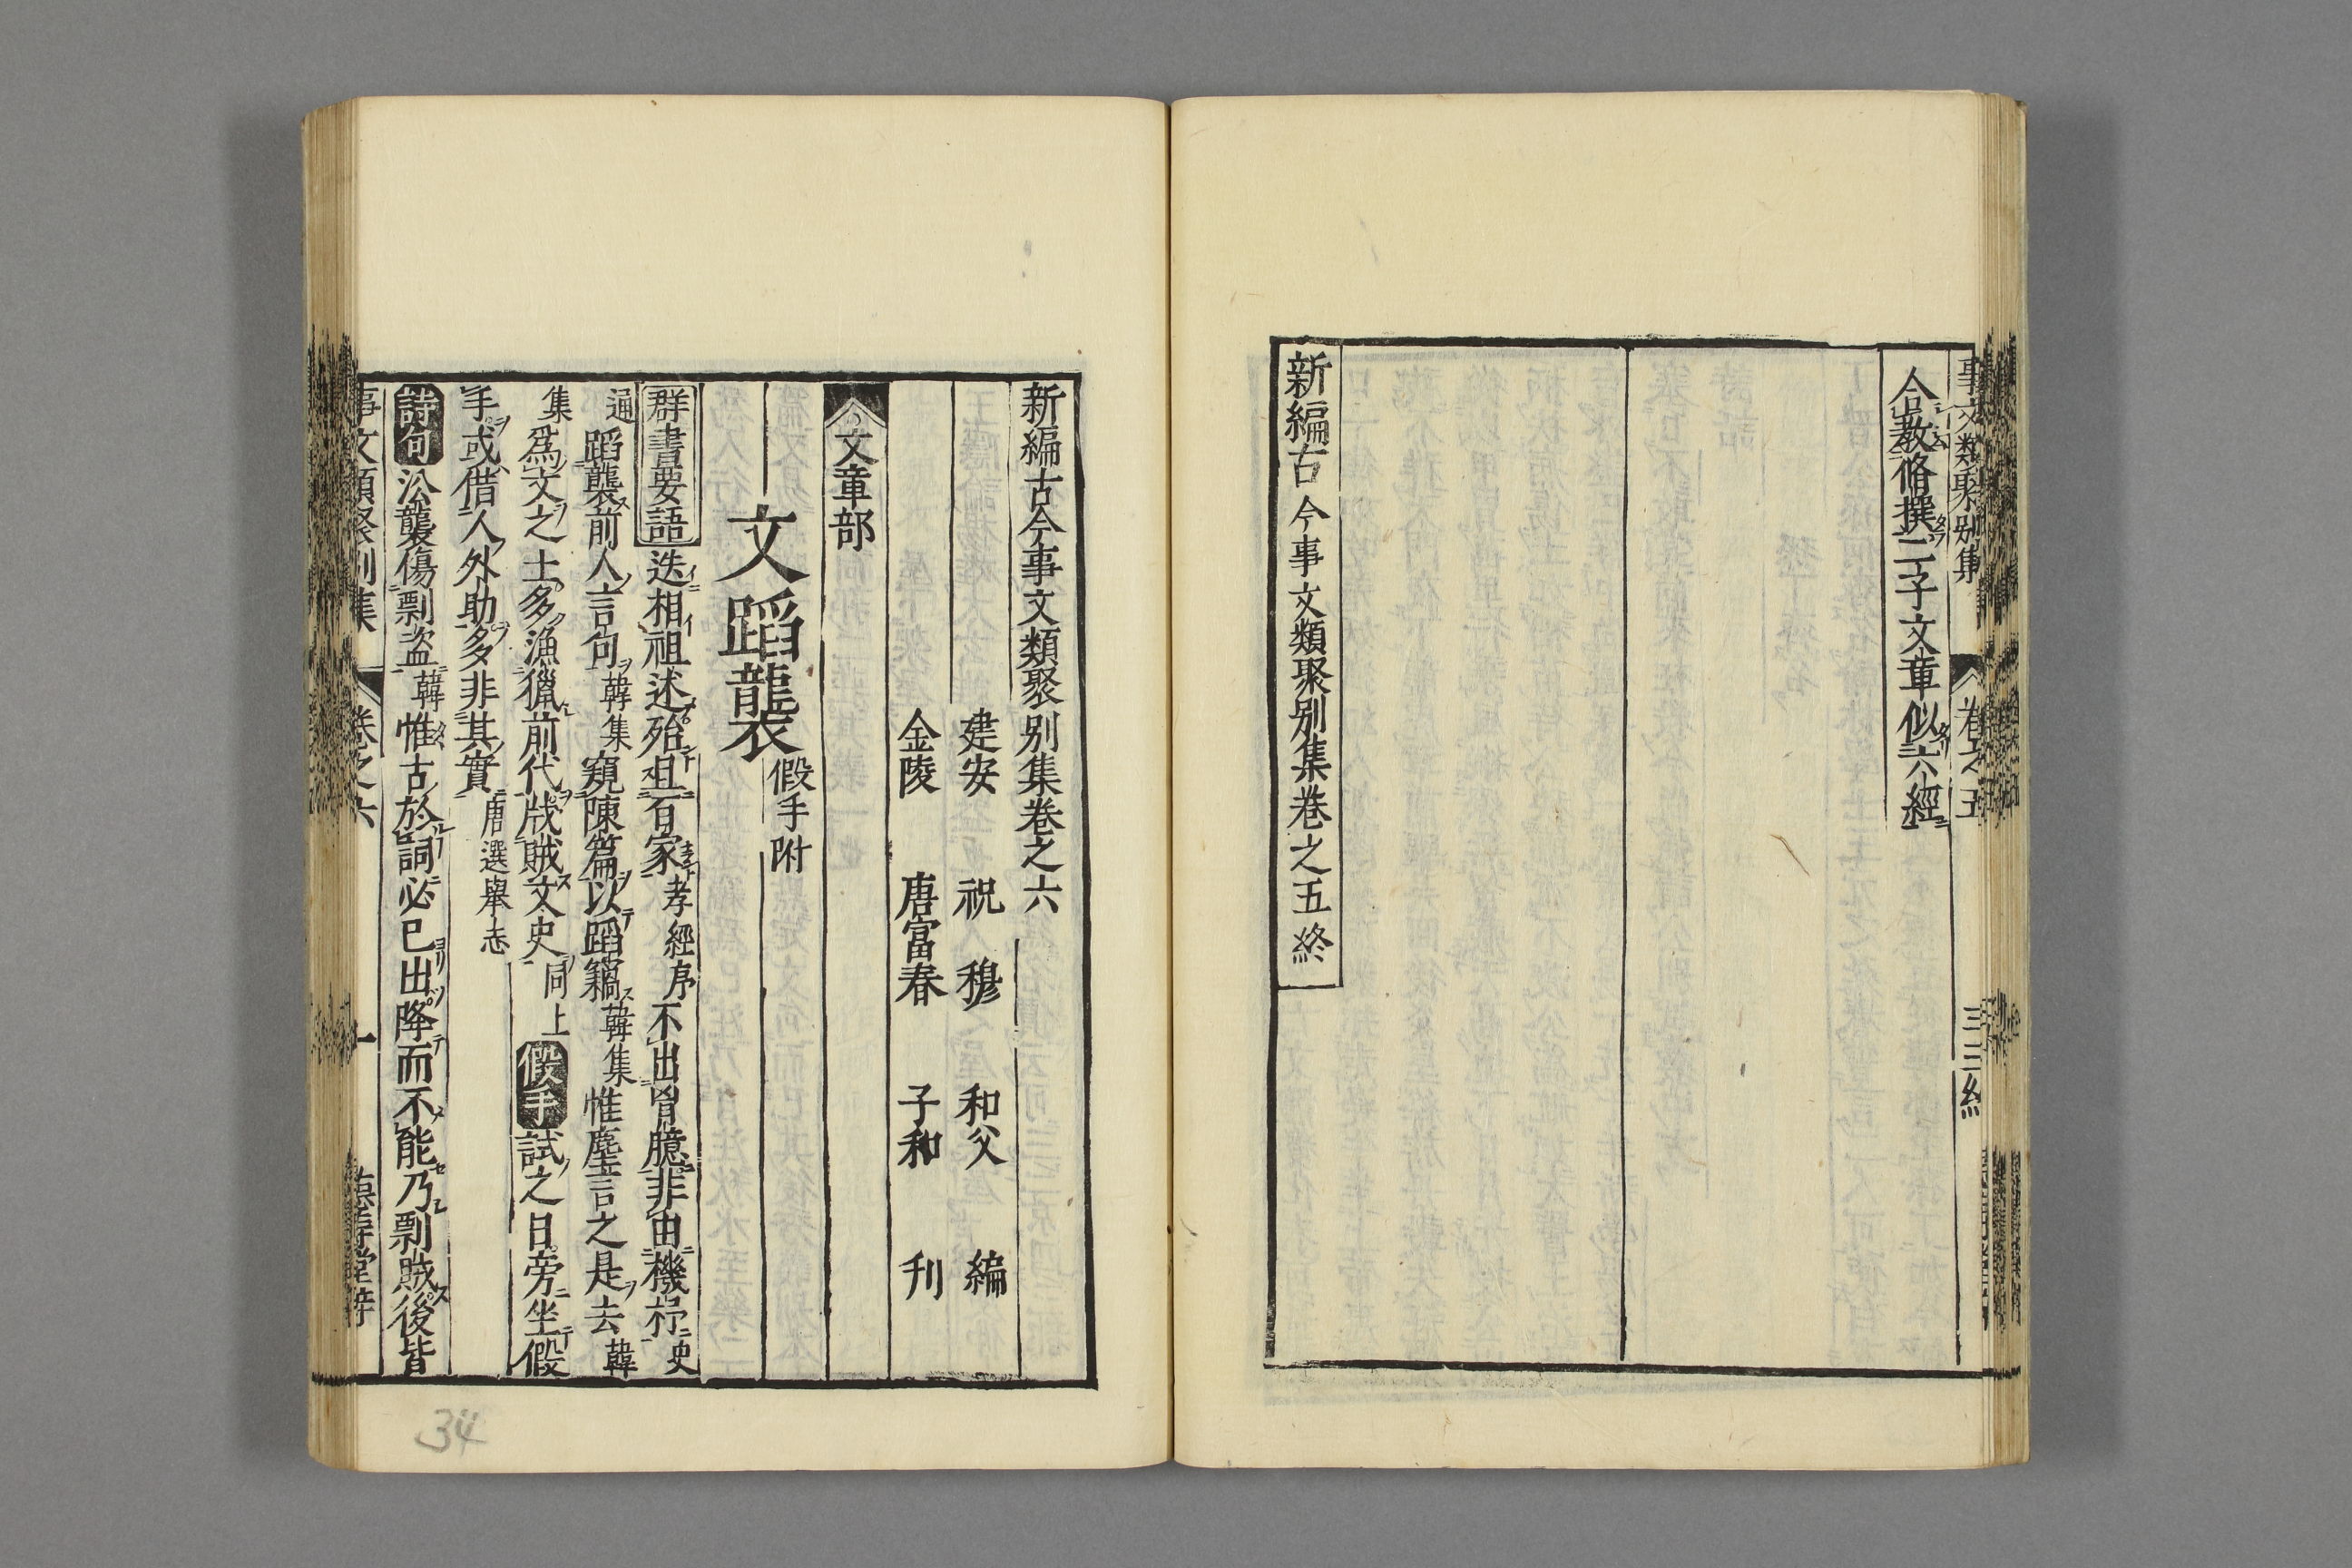 事文類聚別集 卷之五 三三終
合教脩撰二子文章似六經
新編古今事文類聚別集卷之五終
新編古今事文類聚別集卷之六
建安 祝 穆 和父 編
金陵 唐富春 子和 刊
文章部
文蹈襲 假手附
群書要語 迭相祖述殆且百家 孝經序 不出胷臆非由機杼 史
通 蹈襲前人言句 韓集 窺陳篇以蹈竊 韓集 惟塵言之是去 韓
集 爲文之士多漁獵前代戕賊文史 同上 假手 試之日旁坐假
手或借人外助多非其實 唐選舉志
詩句 㳂襲傷剽盗 韓 惟古於詞必已出降而不能乃剽賊後皆
事文類聚別集 卷之六 一 德壽堂梓
34